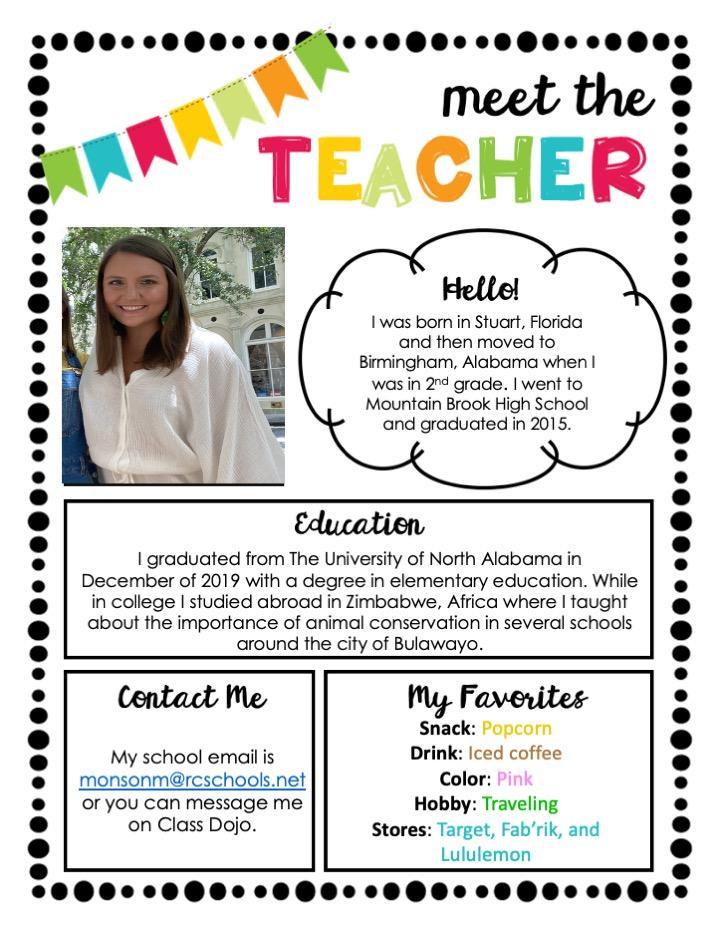 meet the
TEACHER
Hello!
I was born in Stuart, Florida
and then moved to
Birmingham, Alabama when I
was in 2nd grade. I went to
Mountain Brook High School
and graduated in 2015.
Education
I graduated from The University of North Alabama in
December of 2019 with a degree in elementary education. While
in college I studied abroad in Zimbabwe, Africa where I taught
about the importance of animal conservation in several schools
around the city of Bulawayo.
Contact Me
My school email is
monsonm@rcschools.net
or you can message me
on Class Dojo.
My Favorites
Snack: Popcorn
Drink: Iced coffee
Color: Pink
Hobby: Traveling
Stores: Target, Fab’rik, and
Lululemon